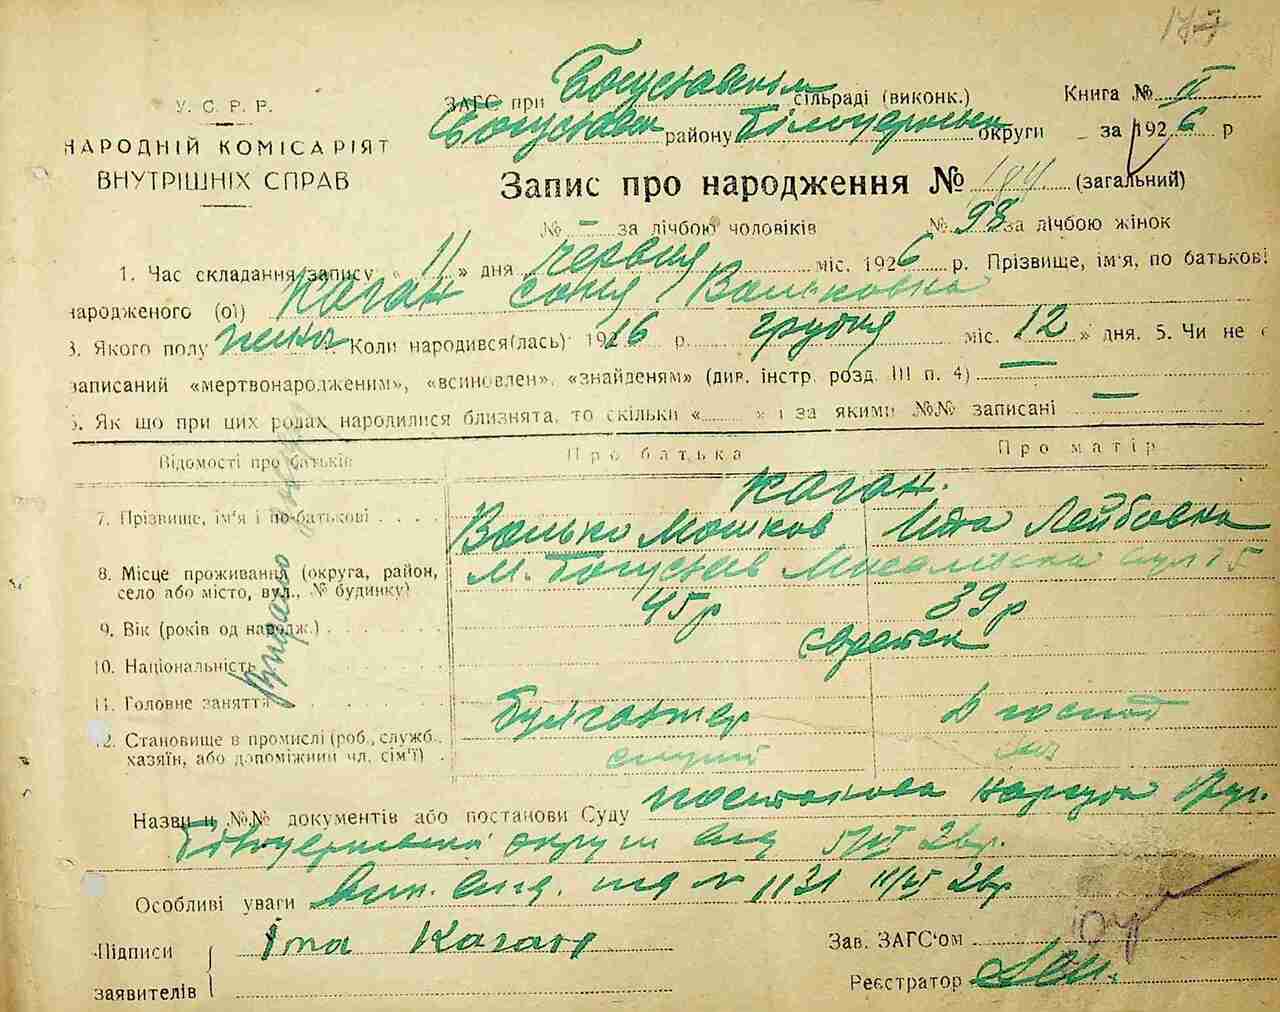 177
У.С.Р.Р.
НАРОДНІЙ КОМІСАРІЯТ
ВНУТРІШНІХ СПРАВ
ЗАГС при Богуславськім сільраді (виконк.) Книга № II
Богуславськ району Білоцерківськ округи за 1926 р
Запис про народження № (загальний)
№ – за лічбою чоловіків № 98 за лічбою жінок
1. Час складання запису « 11 » дня червня міс. 1926 р. Прізвище, ім'я, по батькові
народженого (ої) Каган Соня Вольковна
3. Якого полу жіноч 4. Коли народився(лась) 1916 р. грудня міс. « 12 » дня. 5. Чи не є
записаний «мертвонародженим», «всиновлен», «знайденям» (див. інстр. розд. III п. 4) —
6. Як що при цих родах народилися близнята, то скільки « » і за якими №№ записані —
Відомості про батьків Про батька Про матір
Каган.
7. Прізвище, ім'я і по-батькові Волько Мошков Ита Лейбовна
8. Місце проживання (округа, район, село або місто, вул., № будинку) м. Богуслав
9. Вік (років од народж.) 45р 39р
10. Національність Єврейськ
11. Головне заняття Булгахтер Д господ
12. Становище в промислі (роб., служб., хазяїн, або допоміжний чл. сім'ї)
Видано
Назви и №№ документів або постанови Суду постанова Нарсуда
Білоцерківської округи від 5/VI 26р.
Особливі уваги № 1131 26р
Підписи заявителів Іта Каган
Зав. ЗАГС'ом
Реєстратор